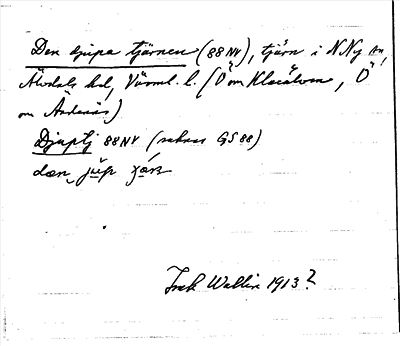 Den djupa tjärnen (88 NV), tjärn i N Ny sn,
Älvdals hd, Värml. l. (Ö om Klarälven, Ö
om Åstenäs)
Djuptj 88 NV (saknas GS 88)
dæn jup
Wallin 1913?